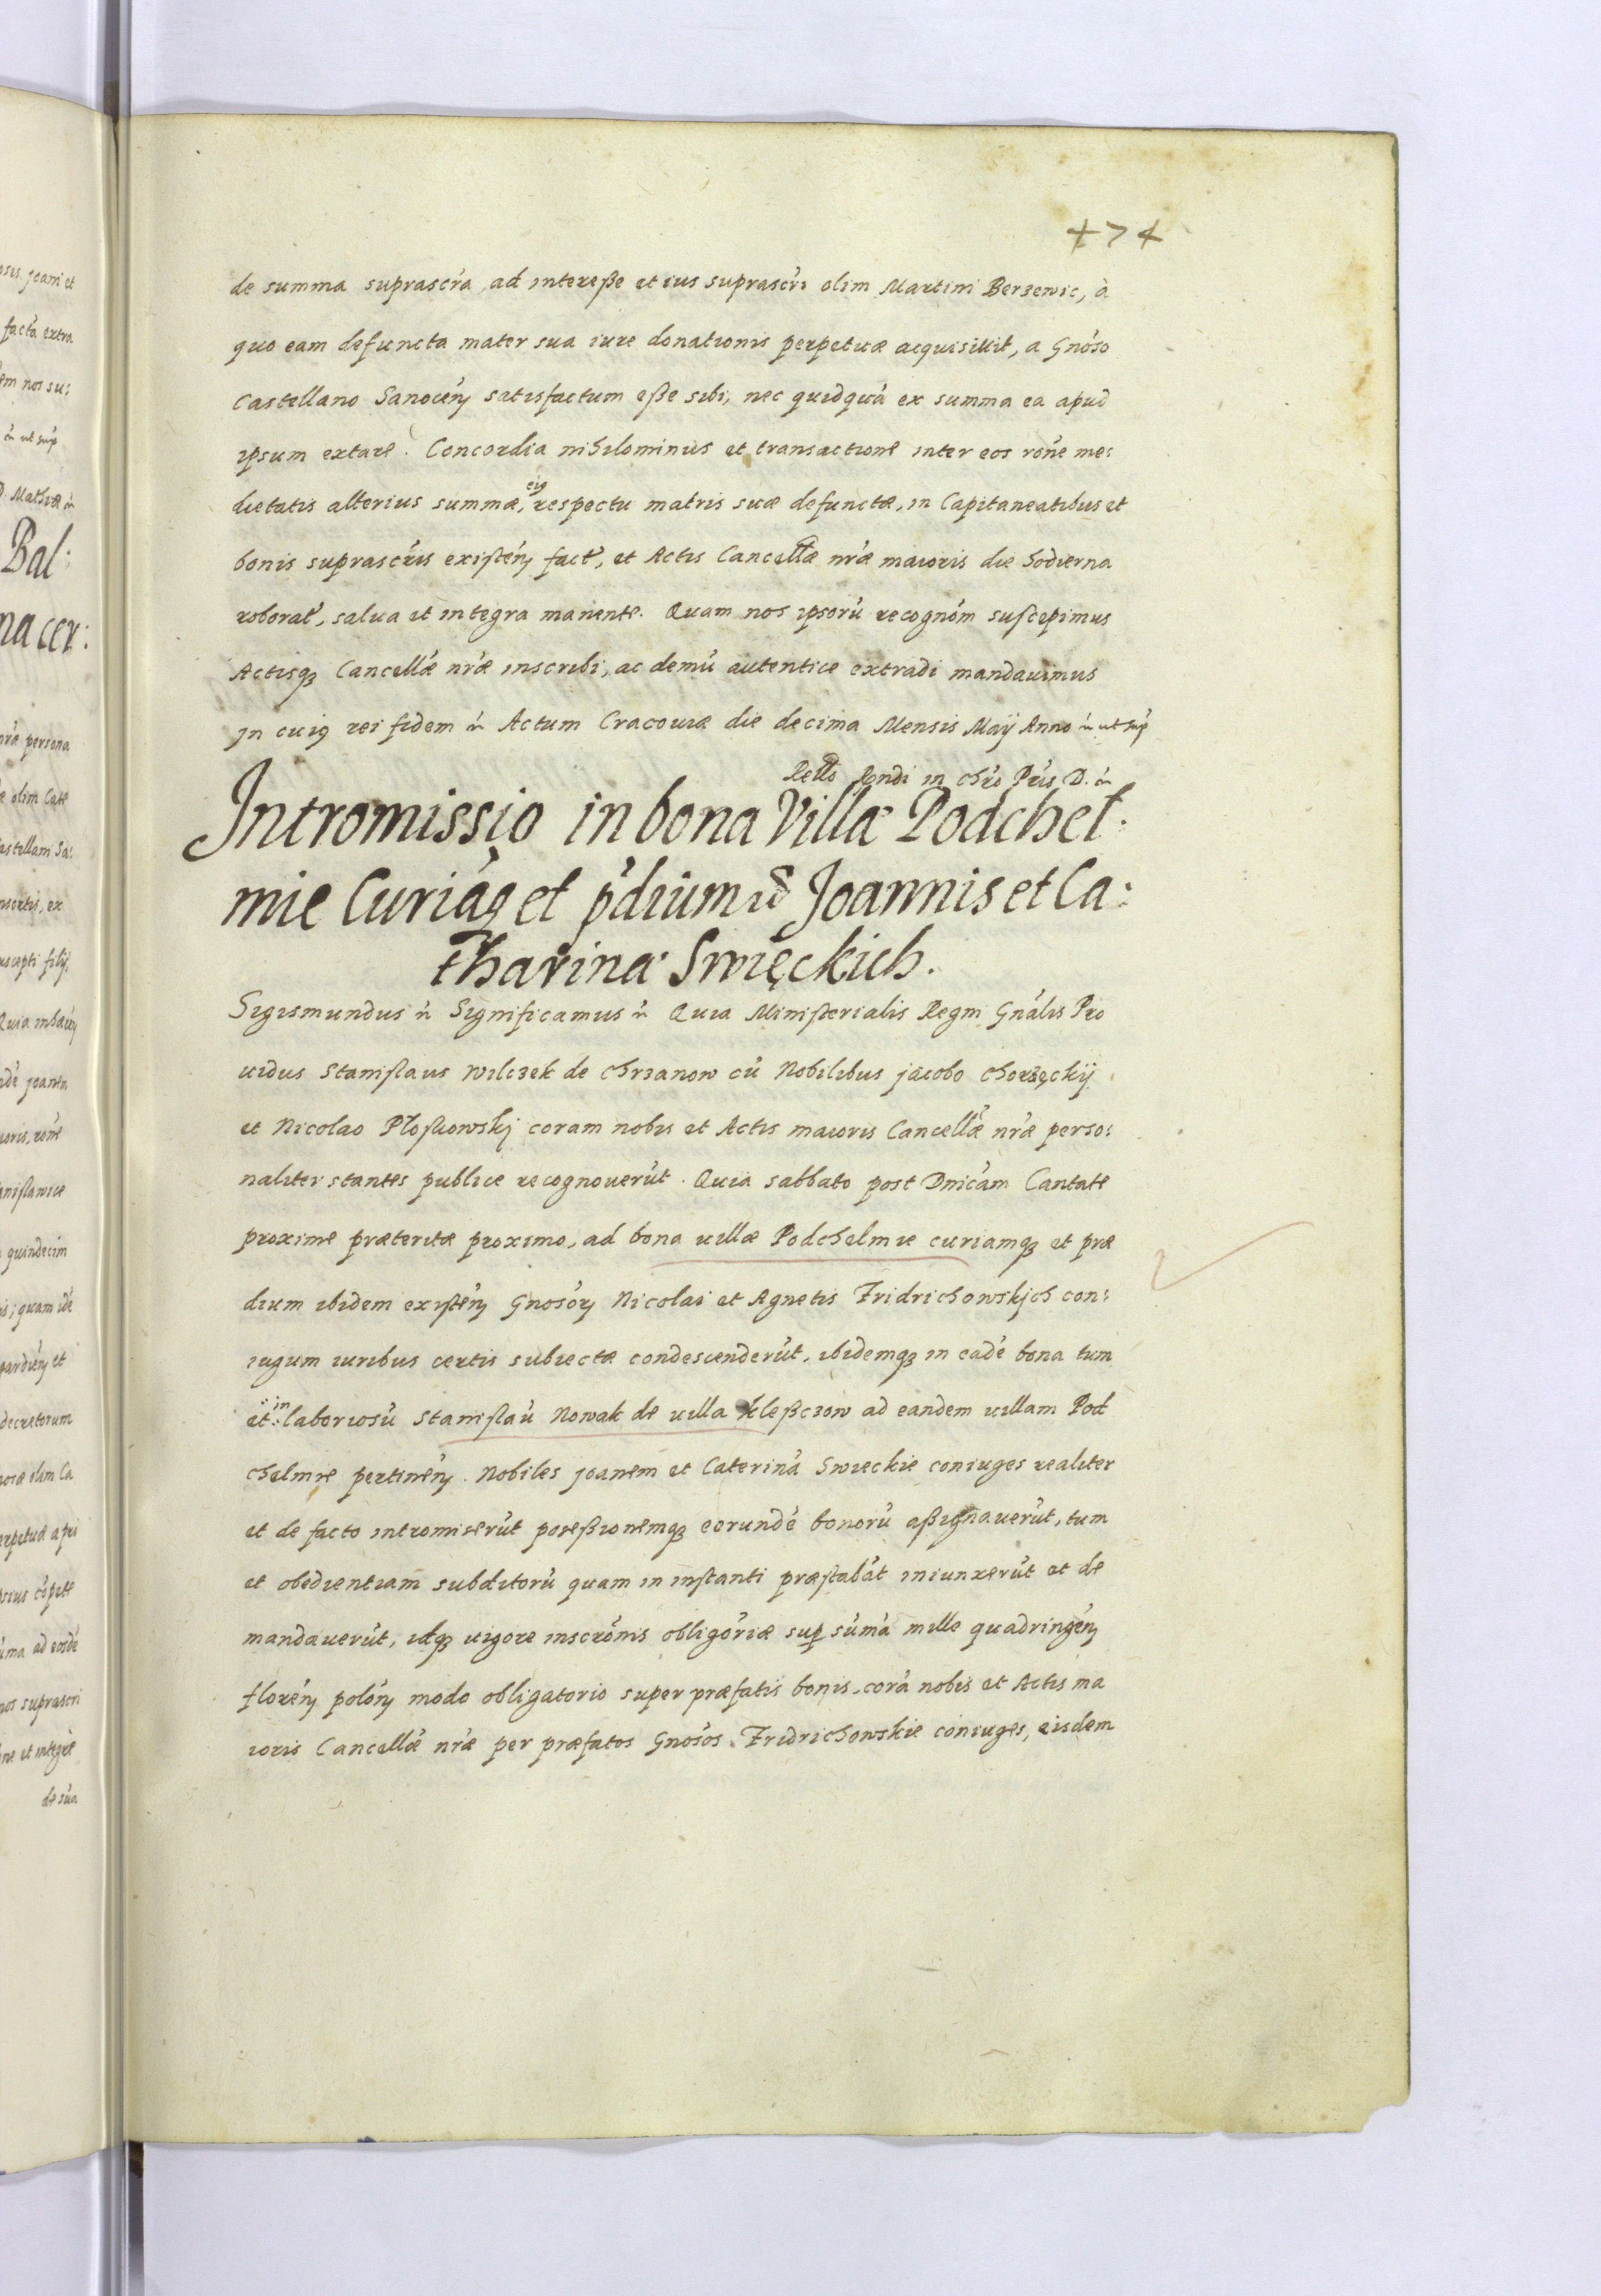 474
de summa suprascra, ad interesse et ius suprascri olim Martini Berzewic, à
quo eam defuncta mater sua iure donationis perpetuæ acquisiuit, a Gnoso
Castellano Sanocen satisfactum esse sibi, nec quidquà ex summa ea apud
ipsum extare. Concordia nihilominus et transactione inter eos rone me:
dietatis alterius summæ, eius respectu matris suæ defunctæ, in Capitaneatibus et
bonis suprascris existen fact, et Actis Cancellæ nræ maioris die hodierna
roborat, salua et integra manente. Quam nos ipsorù recognom suscepimus
Actisq Cancellæ nræ inscribi, ac demù autentice extradi mandauimus
In cuius rei fidem Actum Cracouiæ die decima Mensis Maij Anno ut sup
Rello Rndi in Chro Pris D.
Intromissio in bona Villæ Podchel:
mie Curiaq et pdium Joannis et Ca:
tharinæ Swięckich.
Sigismundus Significamus Quia Ministerialis Regni Gnalis Pro
uidus Stanislaus Wilczek de Chrzanow cù Nobilibus Jacobo Chorzęckij
et Nicolao Ploskowskj coram nobis et Actis maioris Cancellæ nræ perso:
naliter stantes publice recognouerùt. Quia sabbato post Dnicam Cantate
proxime præteritæ proximo, ad bona uillæ Podchelmie curiamq et præ
dium ibidem existen Gnosor Nicolai et Agnetis Fridrichowskjch con:
iugum iuribus certis subiectæ condescenderùt, ibidemq in eadè bona tum
et in laboriosù Stanislaù Nowak de uilla Kleszczow ad eandem uillam Pod
chelmie pertinen. Nobiles Joanem et Caterinà Swieckie coniuges realiter
et de facto intromiserùt posessionemq eorundè bonorù assignauerùt, tum
et obedientiam subditorù quam in instanti præstabàt iniunxerùt et de
mandauerùt, idq uigore inscronis obligoriæ sup sùmà mille quadringen
floren polon modo obligatorio super præfatis bonis, corà nobis et Actis ma
ioris Cancellæ nræ per præfatos Gnosos Fridrichowskie coniuges, eisdem